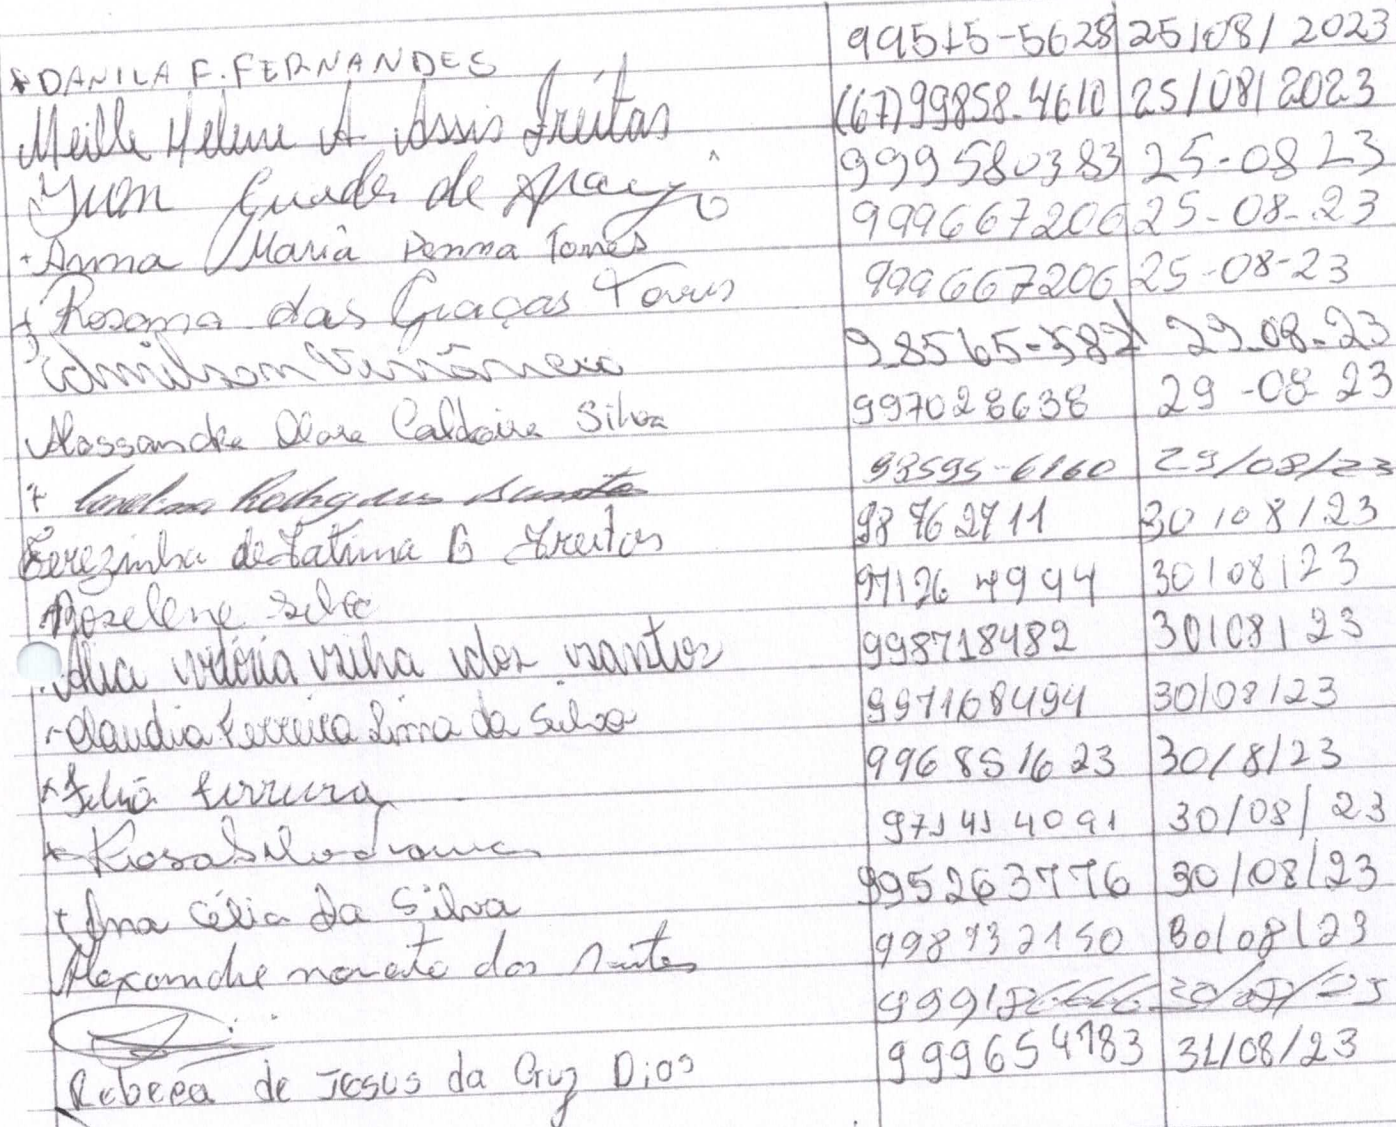 DANILA F. FERNANDES 99515-5628 25/08/2023
Meille Helene A. Assis Freitas (67)99858-4610 25/08/2023
de 999580383 25-08 23
Anna Maria Penna Torres 999667206 25-08-23
Rosana das Graças Torres 999667206 25-08-23
98565-582 29-08-23
Alessandra Clara Caldeira Silva 997028638 29-08 23
Rodrigues 93595-6160 29/08/23
Terezinha de Fatima G Freitas 98762711 30/08/23
Rozelene Silva 97126 4994 30/08/23
vitória dos santos 998718482 30/08/23
Claudia Ferreira Lima da Silva 997168494 30/08/23
Ferreira 996851623 30/8/23
Rosa 971414091 30/08/23
Ana Célia da Silva 995263776 30/08/23
Alexandre nonato dos Santos 998732150 30/08/23
Rebeca de Jesus da Cruz Dios 999654783 31/08/23